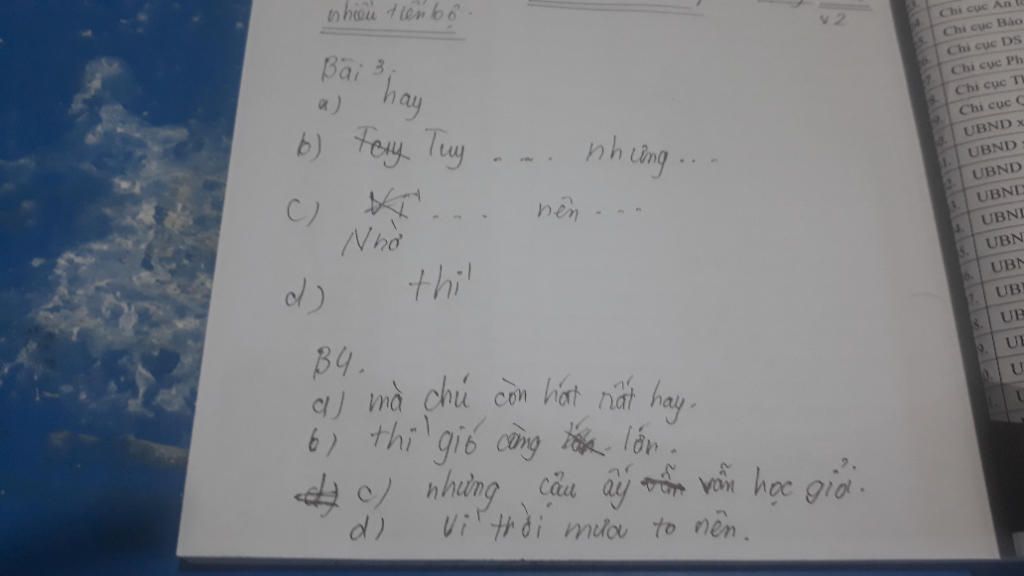 nhiều tiến bộ.
v2
Bài 3.
a) hay
b) Tuy .... nhưng...
c) Vì .... nên ...
Nhờ
d) thì
B4.
a) mà chú còn hót rất hay.
b) thì gió càng lớn.
c) nhưng cậu ấy vẫn học giỏi.
d) vì trời mưa to nên.
Chi cục An
Chi cục Bảo
Chi cục DS
Chi cục Ph
Chi cục Th
Chi cục
UBND x
UBND
UBND
UBND
UBND
UBN
UBN
UB
UB
UB
UB
U